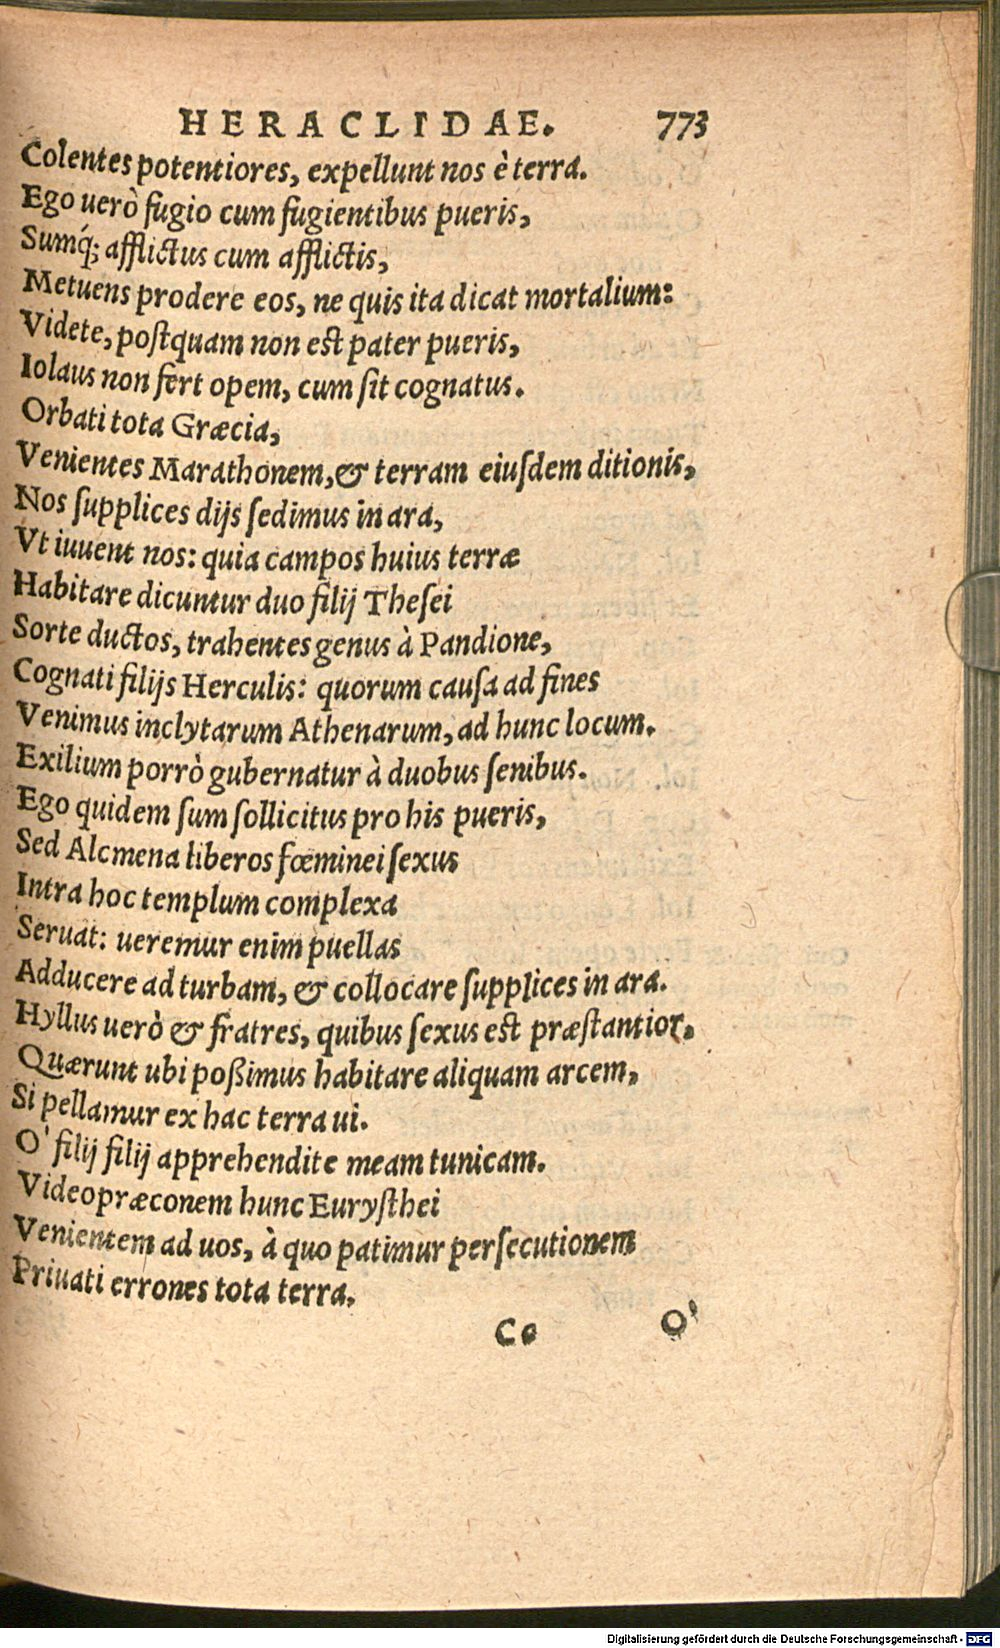 HERACLIDAE. 773
Colentes potentiores, expellunt nos è terra.
Ego uerò fugio cum fugientibus pueris,
Sumq́; afflictus cum afflictis,
Metuens prodere eos, ne quis ita dicat mortalium:
Videte, postquam non est pater pueris,
Iolaus non fert opem, cum sit cognatus.
Orbati tota Græcia,
Venientes Marathonem, & terram eiusdem ditionis,
Nos supplices dijs sedimus in ara,
Vt iuuent nos: quia campos huius terræ
Habitare dicuntur duo filij Thesei
Sorte ductos, trahentes genus à Pandione,
Cognati filijs Herculis: quorum causa ad fines
Venimus inclytarum Athenarum, ad hunc locum.
Exilium porrò gubernatur à duobus senibus.
Ego quidem sum sollicitus pro his pueris,
Sed Alcmena liberos fœminei sexus
Intra hoc templum complexa
Seruat: ueremur enim puellas
Adducere ad turbam, & collocare supplices in ara.
Hyllus uerò & fratres, quibus sexus est præstantior,
Quærunt ubi poßimus habitare aliquam arcem,
Si pellamur ex hac terra ui.
O' filij filij apprehendite meam tunicam.
Video præconem hunc Eurysthei
Venientem ad uos, à quo patimur persecutionem
Priuati errones tota terra.
Cc O'
Digitalisierung gefördert durch die Deutsche Forschungsgemeinschaft - DFG